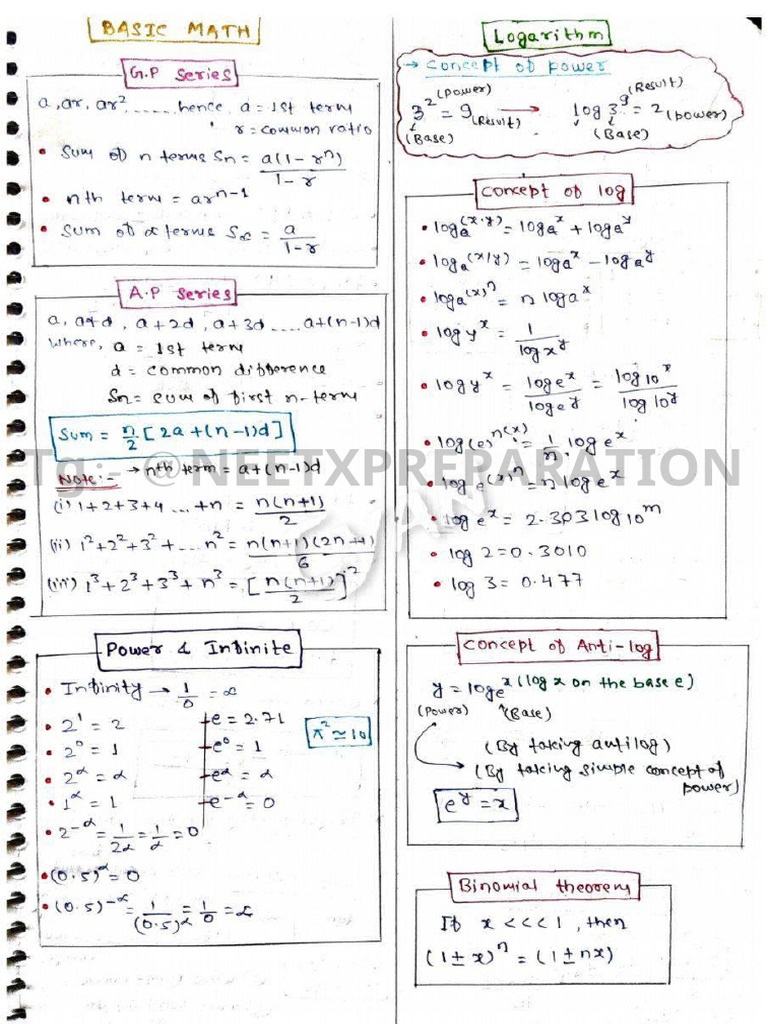 BASIC MATH
G.P series
a, ar, ar² ...... hence, a = 1st term
r = common ratio
• Sum of n terms Sn = a(1-rⁿ)/1-r
• nth term = arⁿ⁻¹
• Sum of ∝ terms S∝ = a/1-r
A.P series
a, a+d, a+2d, a+3d .... a+(n-1)d
where, a = 1st term
d = common difference
Sn = sum of first n-term
Sum = n/2 [2a+(n-1)d]
→ nth term = a+(n-1)d
Note:-
(i) 1+2+3+4 ... +n = n(n+1)/2
(ii) 1²+2²+3²+... n² = n(n+1)(2n+1)/6
(iii) 1³+2³+3³+n³ = [n(n+1)/2]²
Power & Infinite
• Infinity → 1/0 = ∝
• 2¹ = 2
• 2⁰ = 1
• 2^∝ = ∝
• 1^∝ = 1
e = 2.71
e⁰ = 1
e^∝ = ∝
e^-∝ = 0
π² ≃ 10
• 2^-∝ = 1/2∝ = 1/∝ = 0
• (0.5)^∝ = 0
• (0.5)^-∝ = 1/(0.5)^∝ = 1/0 = ∝
Logarithm
→ concept of power
3² (power) = 9 (Result) → log 3⁹ (Result) = 2 (power)
(Base) (Base)
Concept of log
• loga^(x·y) = loga^x + loga^y
• loga^(x/y) = loga^x - loga^y
• loga^(x)^n = n loga^x
• log y^x = 1/log x^y
• log y^x = log e^x/log e^y = log 10^x/log 10^y
• log(e)^n(x) = 1/n log e^x
• log e^(x)^n = n log e^x
• log e^x = 2.303 log 10^m
• log 2 = 0.3010
• log 3 = 0.477
Concept of Anti-log
y = log e^x (log x on the base e)
(Power) (Base)
(By taking antilog)
(By taking simple concept of
power)
e^y = x
Binomial theorem
If x <<< 1, then
(1±x)ⁿ = (1±nx)
Tg:- @NEETXPREPARATION